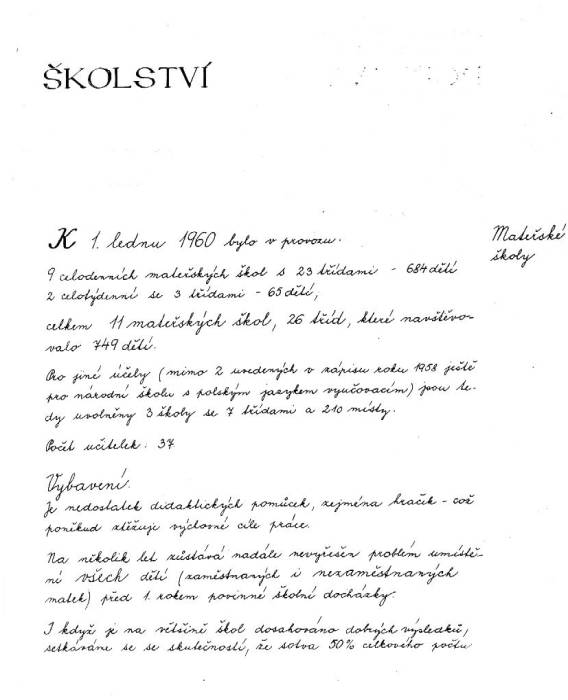 ŠKOLSTVÍ
K 1. lednu 1960 bylo v provozu.
Mateřské
školy
9 celodenních mateřských škol s 23 třídami - 684 dětí
2 celotýdenní se 3 třídami - 65 dětí,
celkem 11 mateřských škol, 26 tříd, které navštěvo-
valo 749 dětí.
Pro jiné účely (mimo 2 uvedených v zápisu roku 1958 ještě
pro národní školu s polským jazykem vyučovacím) jsou te-
dy uvolněny 3 školy se 7 třídami a 210 místy.
Počet učitelek: 37
Vybavení.
Je nedostatek didaktických pomůcek, zejména hraček - což
poněkud ztěžuje výchovné cíle práce.
Na několik let zůstává nadále nevyřešen problém umístě-
ní všech dětí (zaměstnaných i nezaměstnaných
matek) před 1. rokem povinné školní docházky.
I když je na většině škol dosahováno dobrých výsledků,
setkáváme se se skutečností, že sotva 50% celkového počtu